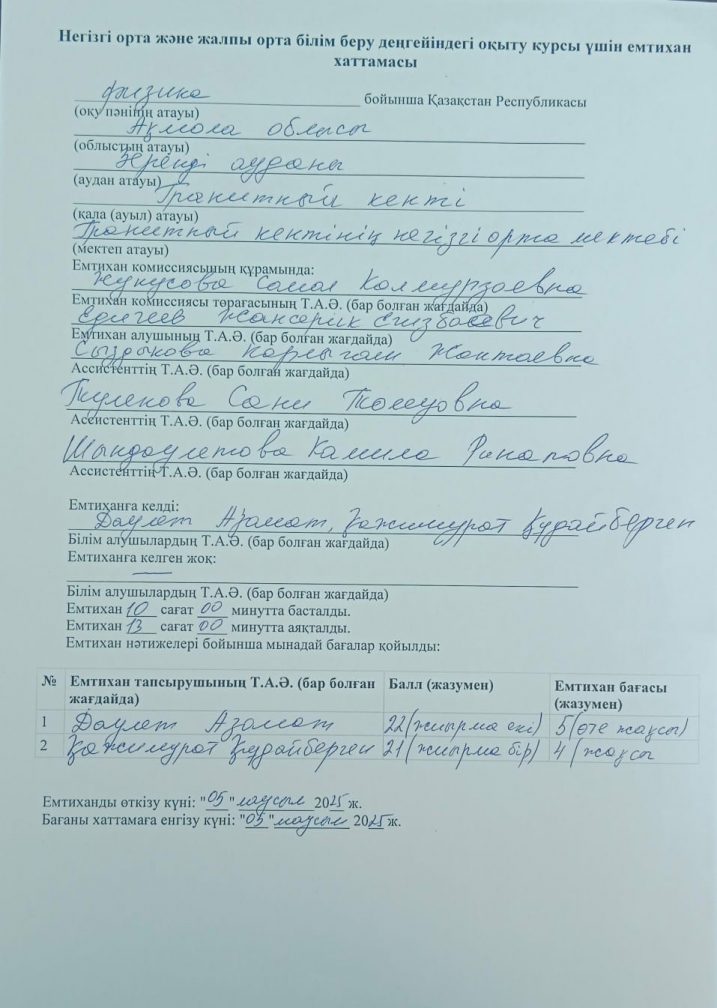 Негізгі орта және жалпы орта білім беру деңгейіндегі оқыту курсы үшін емтихан
хаттамасы
физика бойынша Қазақстан Республикасы
(оқу пәнінің атауы)
Ақмола облысы
(облыстың атауы)
Зеренді ауданы
(аудан атауы)
Гранитный кенті
(қала (ауыл) атауы)
Гранитный кентінің негізгі орта мектебі
(мектеп атауы)
Емтихан комиссиясының құрамында:
Жунусова Самал Калмурзаевна
Емтихан комиссиясы төрағасының Т.А.Ә. (бар болған жағдайда)
Едигеев Жансерик
Емтихан алушының Т.А.Ә. (бар болған жағдайда)
Сыздыкова Карлыгаш Жантаевна
Ассистенттің Т.А.Ә. (бар болған жағдайда)
Туленова Сани
Ассистенттің Т.А.Ә. (бар болған жағдайда)
Шындаулетова Камила Ринатовна
Ассистенттің Т.А.Ә. (бар болған жағдайда)
Емтиханға келді:
Даулет Азамат, Қажимурат Құдайберген
Білім алушылардың Т.А.Ә. (бар болған жағдайда)
Емтиханға келген жоқ:
—
Білім алушылардың Т.А.Ә. (бар болған жағдайда)
Емтихан 10 сағат 00 минутта басталды.
Емтихан 13 сағат 00 минутта аяқталды.
Емтихан нәтижелері бойынша мынадай бағалар қойылды:
№ Емтихан тапсырушының Т.А.Ә. (бар болған жағдайда) Балл (жазумен) Емтихан бағасы (жазумен)
1 Даулет Азамат 22 (жиырма екі) 5 (өте жақсы)
2 Қажимурат Құдайберген 21 (жиырма бір) 4 (жақсы
Емтиханды өткізу күні: "05" маусым 2025 ж.
Бағаны хаттамаға енгізу күні: "05" маусым 2025 ж.